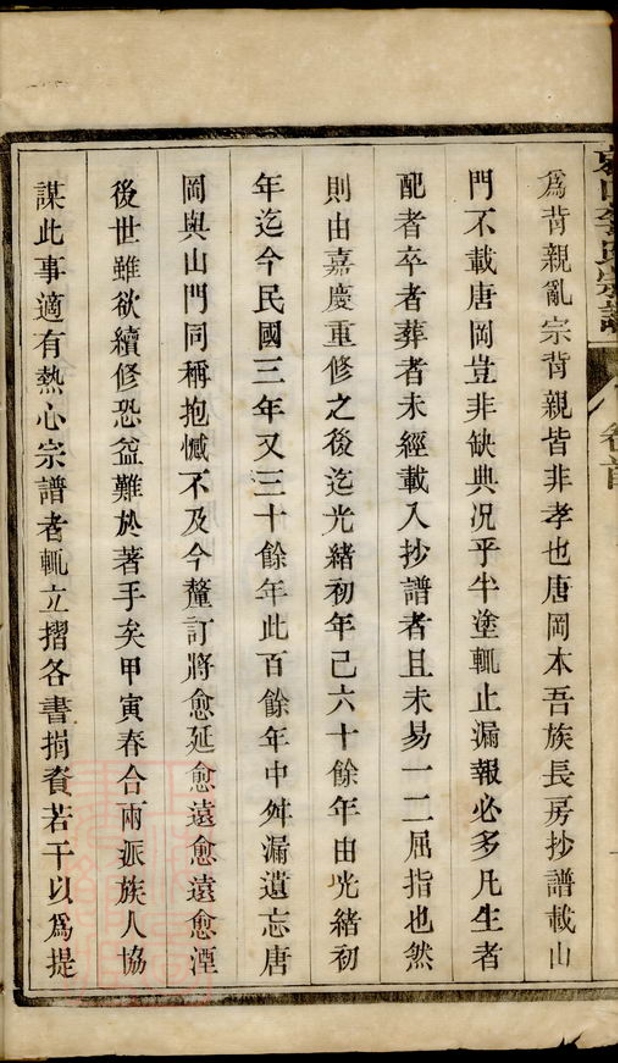 卷首
爲背親亂宗背親皆非孝也唐岡本吾族長房抄譜載山
門不載唐岡豈非缺典况乎半塗輒止漏報必多凡生者
配者卒者葬者未經載入抄譜者且未易一二屈指也然
則由嘉慶重修之後迄光緒初年已六十餘年由光緒初
年迄今民國三年又三十餘年此百餘年中舛漏遺忘唐
岡與山門同稱抱憾不及今釐訂將愈延愈遠愈遠愈湮
後世雖欲續修恐益難於著手矣甲寅春合兩派族人協
謀此事適有熱心宗譜者輒立摺各書捐資若干以爲提